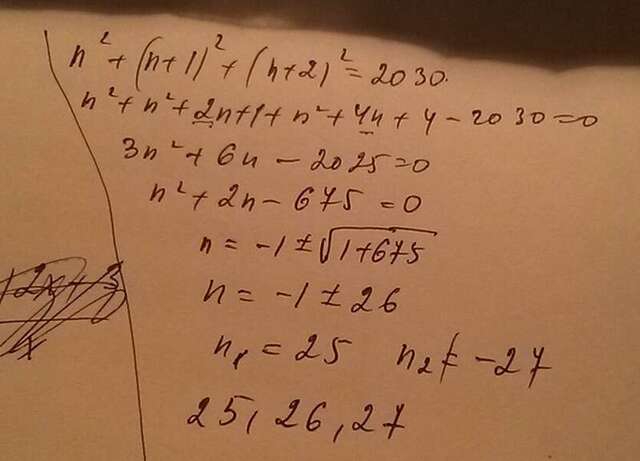 n² + (n+1)² + (n+2)² = 2030.
n² + n² + 2n + 1 + n² + 4n + 4 - 2030 = 0
3n² + 6n - 2025 = 0
n² + 2n - 675 = 0
n = -1 ± √1+675
n = -1 ± 26
n₁ = 25 n₂ ≠ -27
25, 26, 27